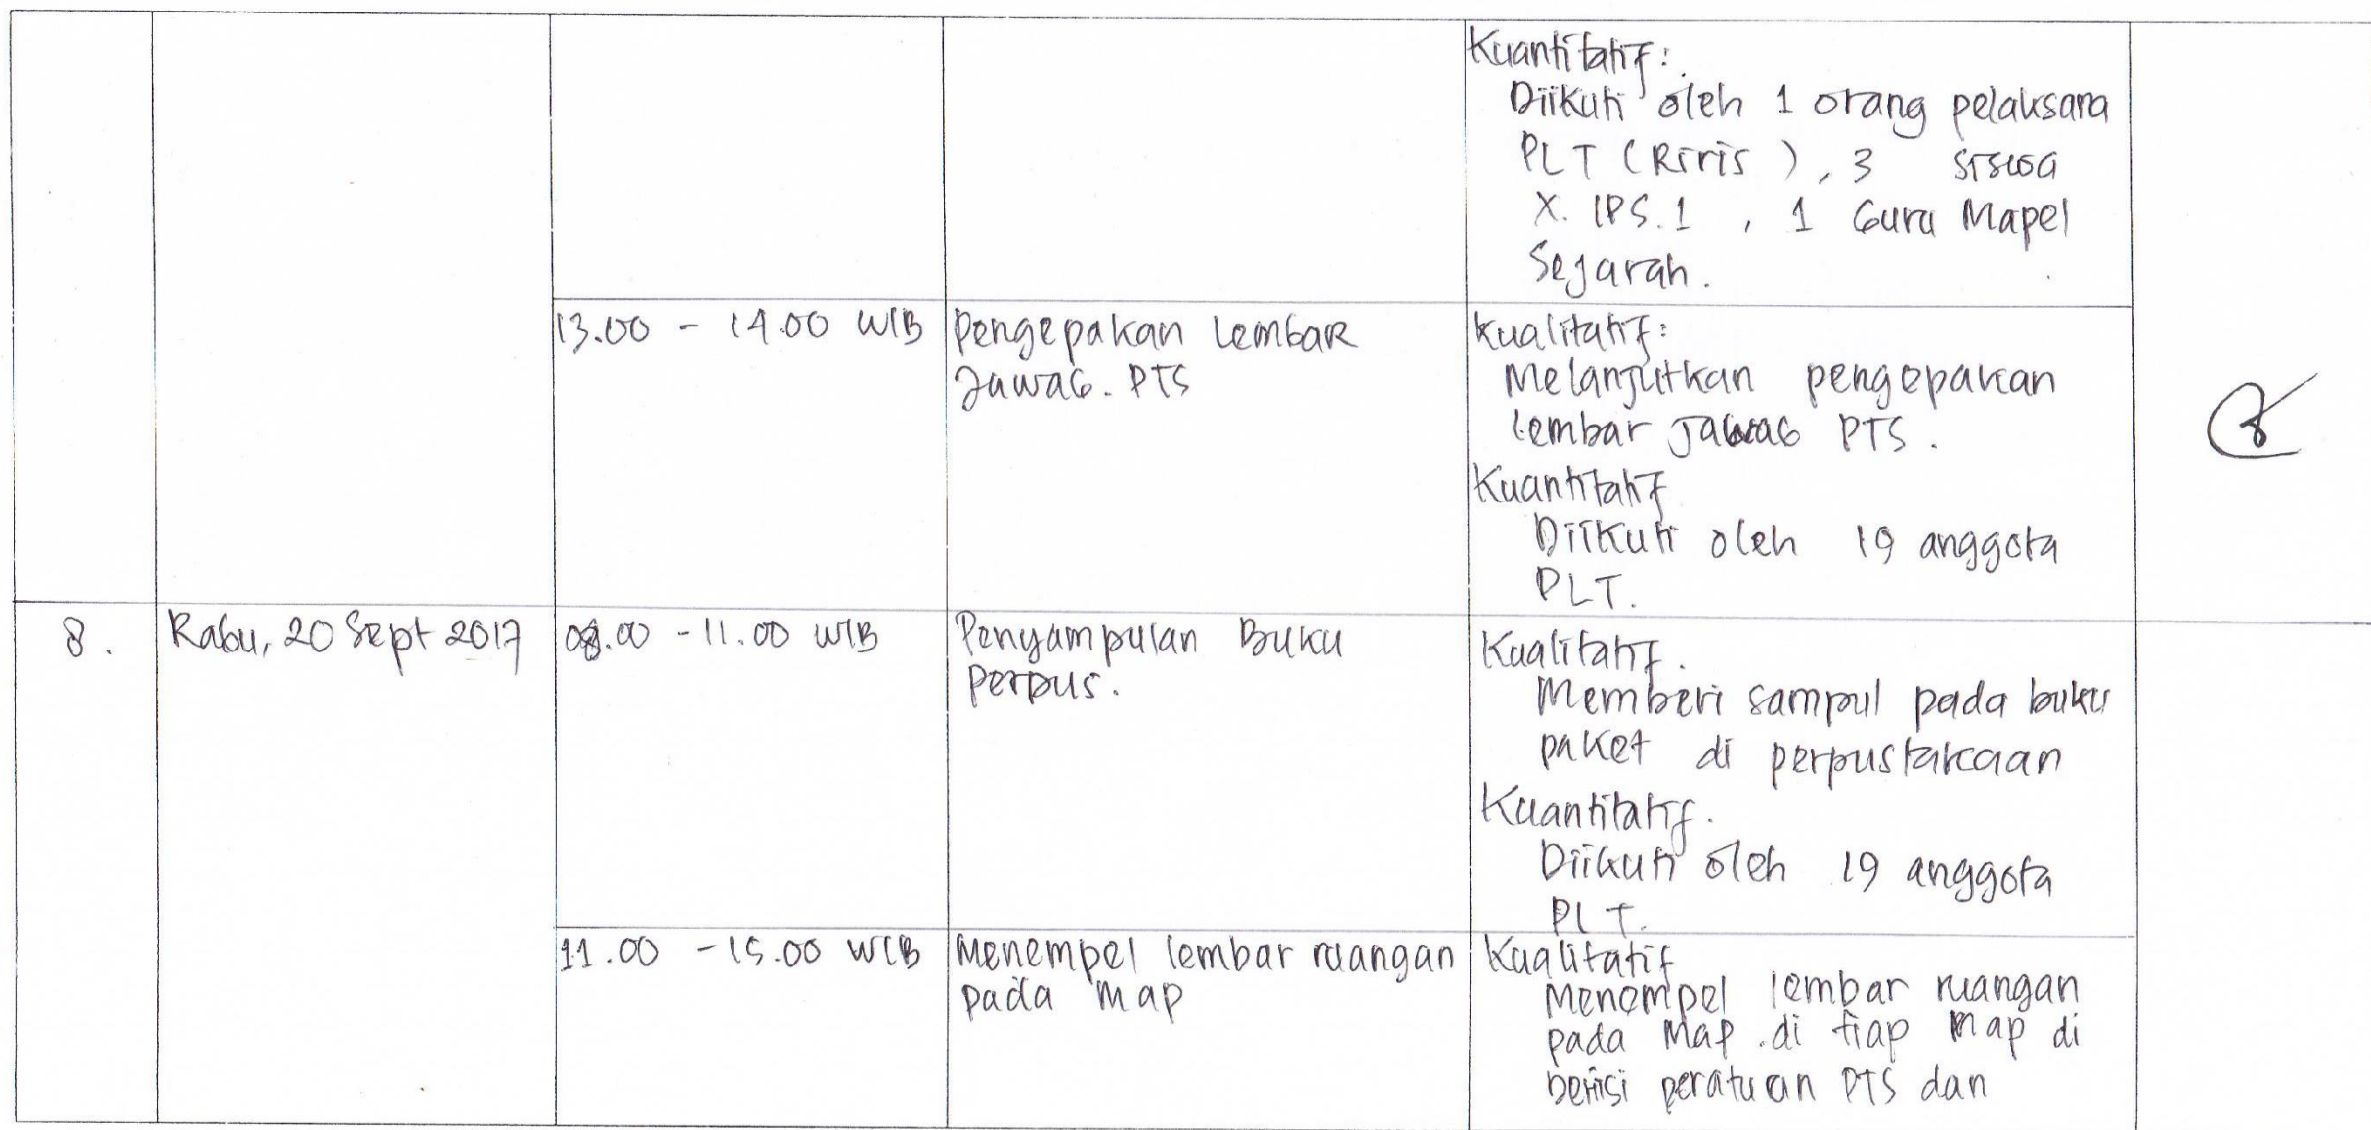 Kuantitatif:
Diikuti oleh 1 orang pelaksana
PLT (Riris), 3 siswa
X. IPS.1, 1 Guru Mapel
Sejarah.
13.00 - 14.00 WIB
Pengepakan Lembar
Jawab. PTS
Kualitatif:
Melanjutkan pengepakan
lembar jawab PTS.
Kuantitatif
Diikuti oleh 19 anggota
PLT.
8.
Rabu, 20 Sept 2017
08.00 - 11.00 WIB
Penyampulan Buku
Perpus.
Kualitatif.
Memberi sampul pada buku
paket di perpustakaan
Kuantitatif.
Diikuti oleh 19 anggota
PLT.
11.00 - 15.00 WIB
Menempel lembar ruangan
pada map
Kualitatif
Menempel lembar ruangan
pada Map .di tiap map di
berisi peratuan PTS dan